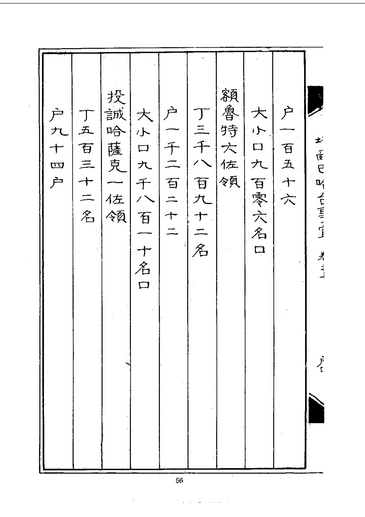 户一百五十六
大小口九百零六名口
額魯特六佐領
丁三千八百九十二名
户一千二百二十二
大小口九千八百一十名口
投誠哈薩克一佐領
丁五百三十二名
户九十四户
56